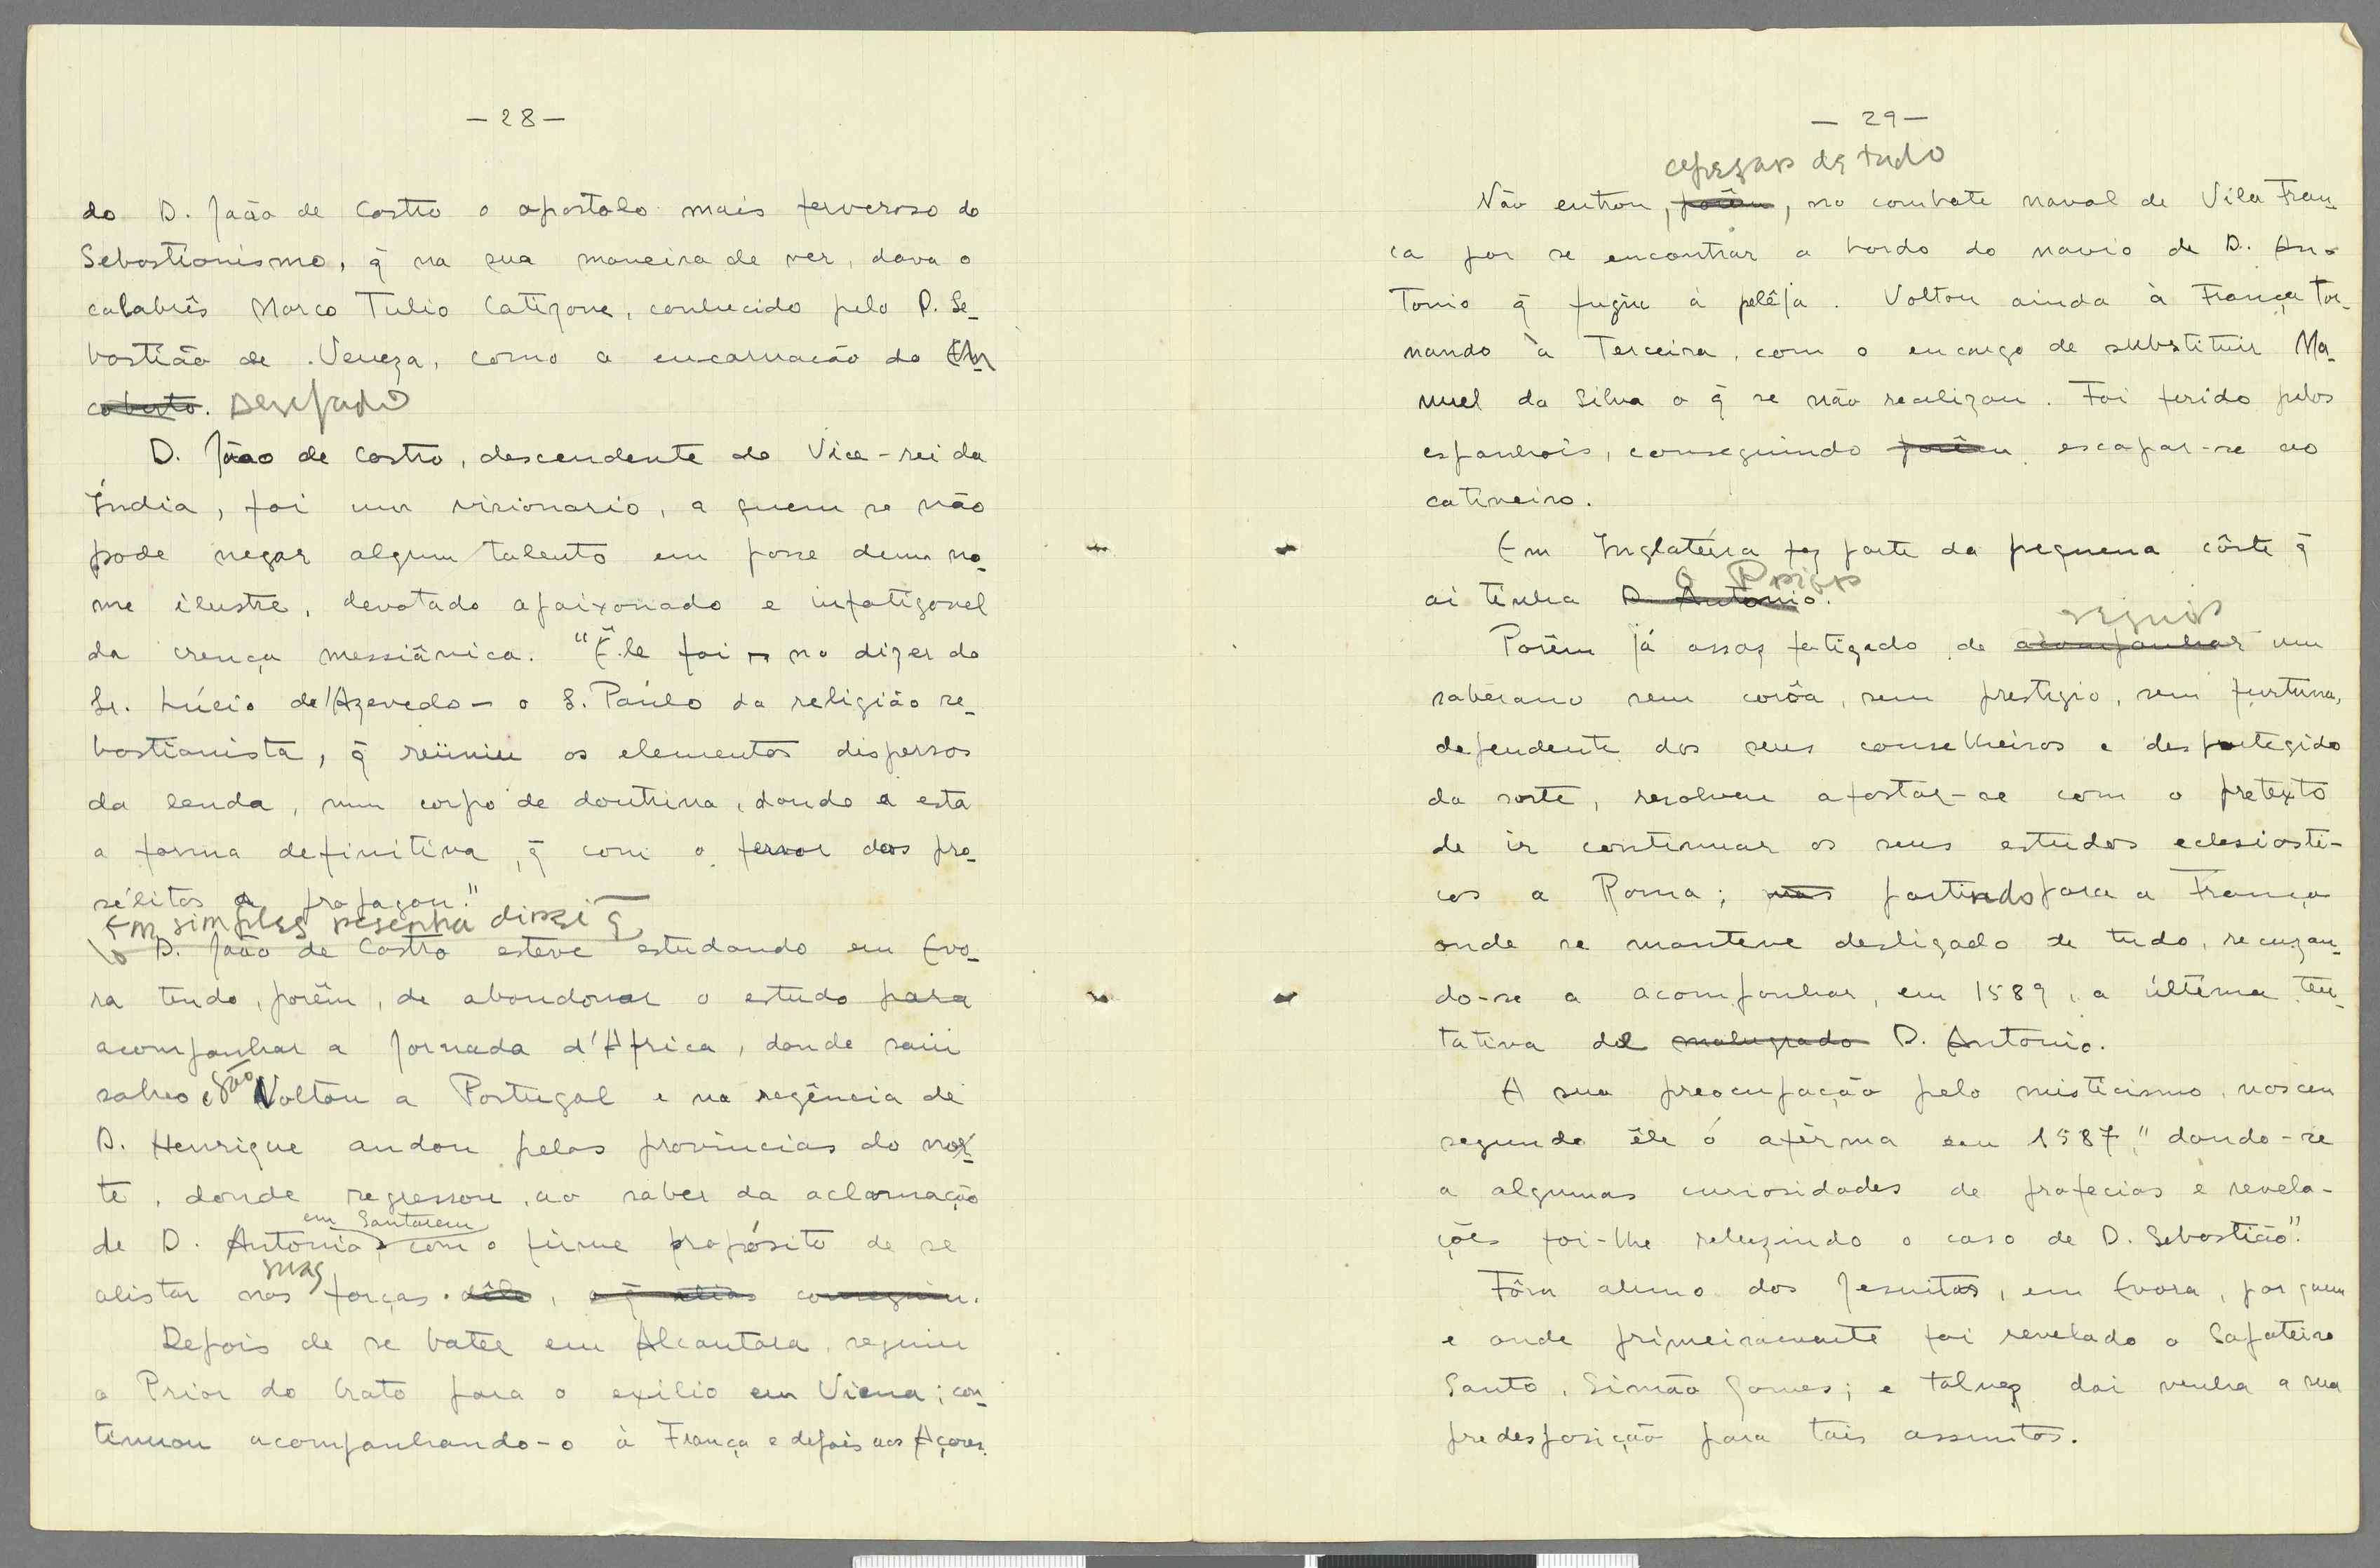 — 28 —
do D. João de Castro o apostolo mais fervoroso do
Sebastianismo, q̃ na sua maneira de ver, dava o
calabrês Marco Tulio Catizone, conhecido pelo D. Se-
bastião de Veneza, como a encarnação do En
coberto. Desejado
D. João de Castro, descendente do Vice-rei da
Índia, foi um visionario, a quem se não
pode negar algum talento em posse dum no-
me ilustre, devotado apaixonado e infatigavel
da crença messiânica. "Êle foi — no dizer do
Sr. Lúcio de Azevedo — o S. Paulo da religião se-
bastianista, q̃ reüniu os elementos dispersos
da lenda, num corpo de doutrina, dando a esta
a forma definitiva, q̃ com o fervor dos pro-
sélitos a propagou."
Em simples resenha direi q̃
D. João de Castro esteve estudando em Evo-
ra tendo, porêm, de abandonar o estudo para
acompanhar a Jornada d'Africa, donde saiu
salvo e são Voltou a Portugal e na regência de
D. Henrique andou pelas provincias do nor-
te, donde regressou, ao saber da aclamação
em Santarem
de D. Antonio, com o firme propósito de se
suas
alistar nas forças dêle, o q̃ aliás conseguiu.
Depois de se bater em Alcantara, seguiu
o Prior do Crato para o exilio em Viena; con-
tinuou acompanhando-o à França e depois aos Açores.
— 29 —
apezar de tudo
Não entrou, porêm, no combate naval de Vila Fran-
ca por se encontrar a bordo do navio de D. An-
tonio q̃ fugiu á pelêja. Voltou ainda à França tor-
nando à Terceira, com o encargo de substituir Ma-
nuel da Silva o q̃ se não realizou. Foi ferido pelos
espanhois, conseguindo porêm escapar-se ao
cativeiro.
Em Inglatérra fez parte da pequena côrte q̃
o Prior
ai tinha D. Antonio.
seguir
Porêm já assaz fatigado de acompanhar um
soberano sem corôa, sem prestigio, sem fortuna,
dependente dos seus conselheiros e desprotegido
da sorte, resolveu afastar-se com o pretexto
de ir continuar os seus estudos eclesiasti-
cos a Roma; mas partindo para a França
onde se manteve desligado de tudo, recuzan-
do-se a acompanhar, em 1589, a última ten-
tativa de malogrado D. Antonio.
A sua preocupação pelo misticismo, nasceu
segundo êle ó afirma em 1587, "dando-se
a algumas curiosidades de profecias e revela-
ções foi-lhe reluzindo o caso de D. Sebastião".
Fôra aluno dos Jesuitas, em Evora, por quem
e onde primeiramente foi revelado o Sapateiro
Santo, Simão Gomes; e talvez dai venha a sua
predesposição para tais assuntos.